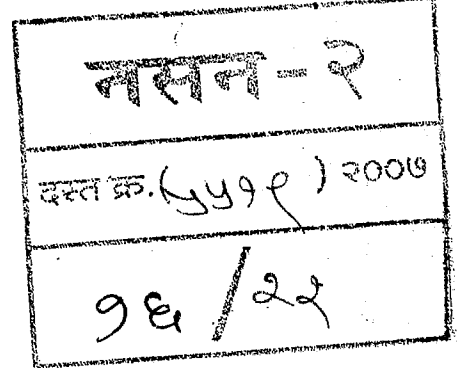 नसन-२
दस्त क्र.(५५१९) २००७
१६/२२